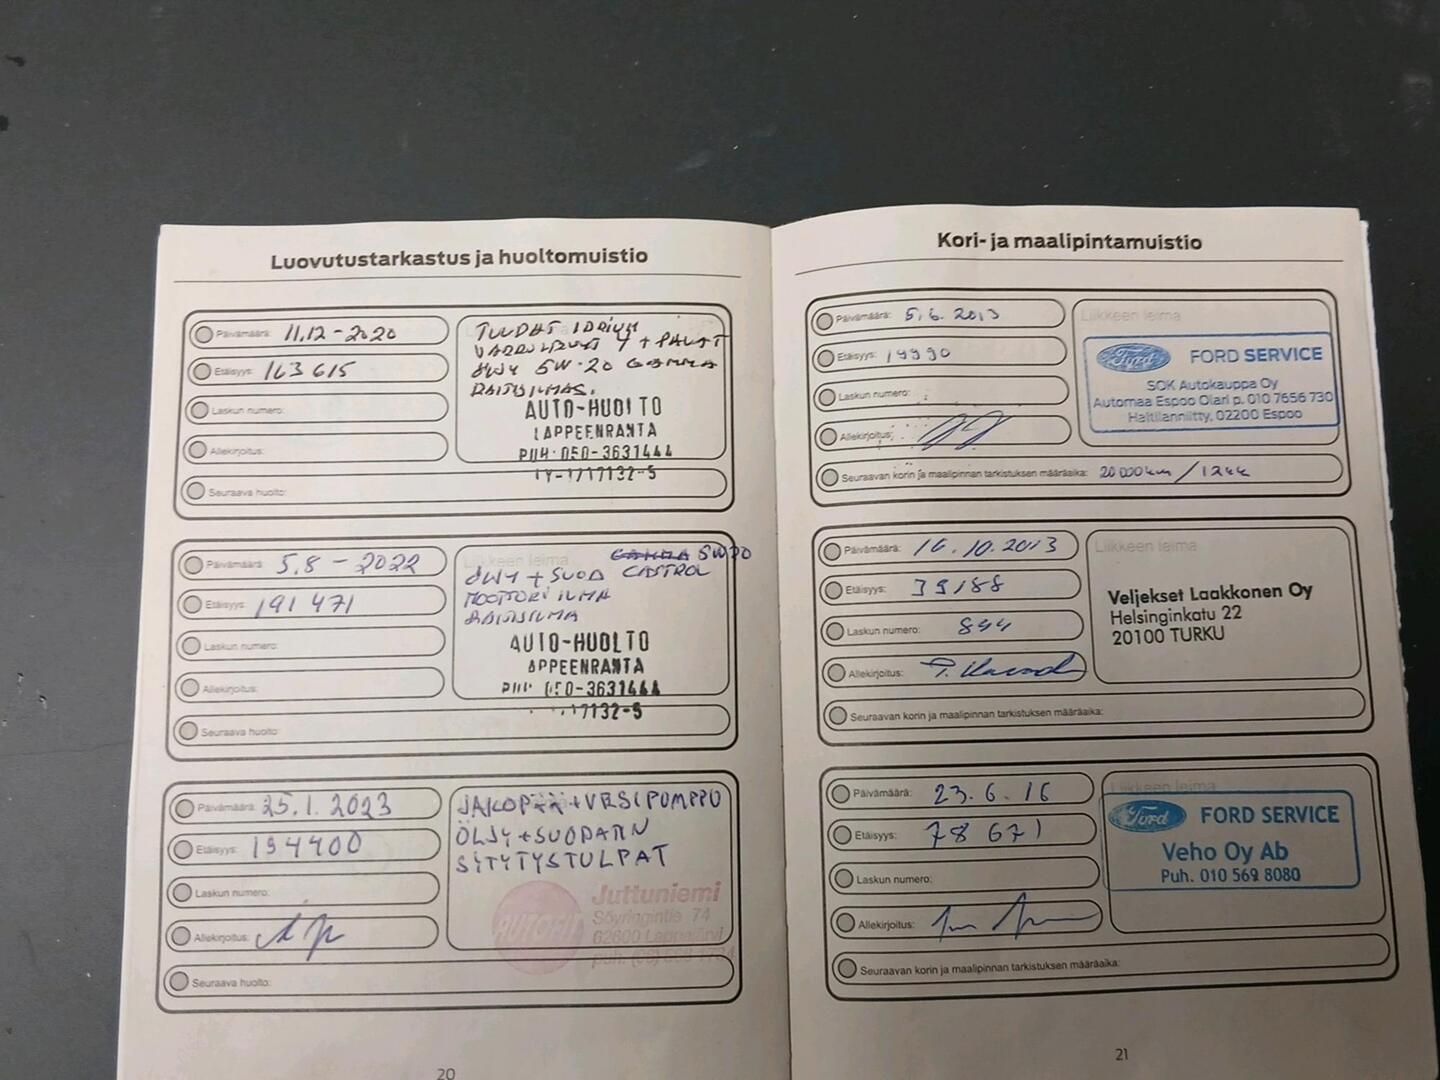 Luovutustarkastus ja huoltomuistio
Päivämäärä: 11.12-2020
Etäisyys: 163615
Laskun numero:
Allekirjoitus:
Seuraava huolto:
TUUDAT IDRIUM
4 +
ÖLJY 5W-20 GAMMA
RAITISILMAS.
AUTO-HUOLTO
LAPPEENRANTA
PUH. 050-3631444
LY-1717132-5
Päivämäärä: 5.8-2022
Etäisyys: 191 471
Laskun numero:
Allekirjoitus:
Seuraava huolto:
Liikkeen leima
GAMMA 5W20
ÖLJY + SUOD CASTROL
MOOTTORI ILMA
RAITISILMA
AUTO-HUOLTO
APPEENRANTA
PUH 050-3631444
17132-5
Päivämäärä: 25.1.2023
Etäisyys: 194400
Laskun numero:
Allekirjoitus:
Seuraava huolto:
JAKOPÄÄ+VESIPUMPPU
ÖLJY+SUODATIN
SYTYTYSTULPAT
AUTOFIT
Juttuniemi
Söyringintie 74
62600 Lappajärvi
20
Kori- ja maalipintamuistio
Päivämäärä: 5.6.2013
Etäisyys: 19990
Laskun numero:
Allekirjoitus:
Seuraavan korin ja maalipinnan tarkistuksen määräaika: 20 000km / 12kk
Liikkeen leima
Ford FORD SERVICE
SOK Autokauppa Oy
Automaa Espoo Olari p. 010 7656 730
Haltilanniitty, 02200 Espoo
Päivämäärä: 16.10.2013
Etäisyys: 39188
Laskun numero: 844
Allekirjoitus:
Seuraavan korin ja maalipinnan tarkistuksen määräaika:
Liikkeen leima
Veljekset Laakkonen Oy
Helsinginkatu 22
20100 TURKU
Päivämäärä: 23.6.16
Etäisyys: 78 671
Laskun numero:
Allekirjoitus:
Seuraavan korin ja maalipinnan tarkistuksen määräaika:
Liikkeen leima
Ford FORD SERVICE
Veho Oy Ab
Puh. 010 569 8080
21